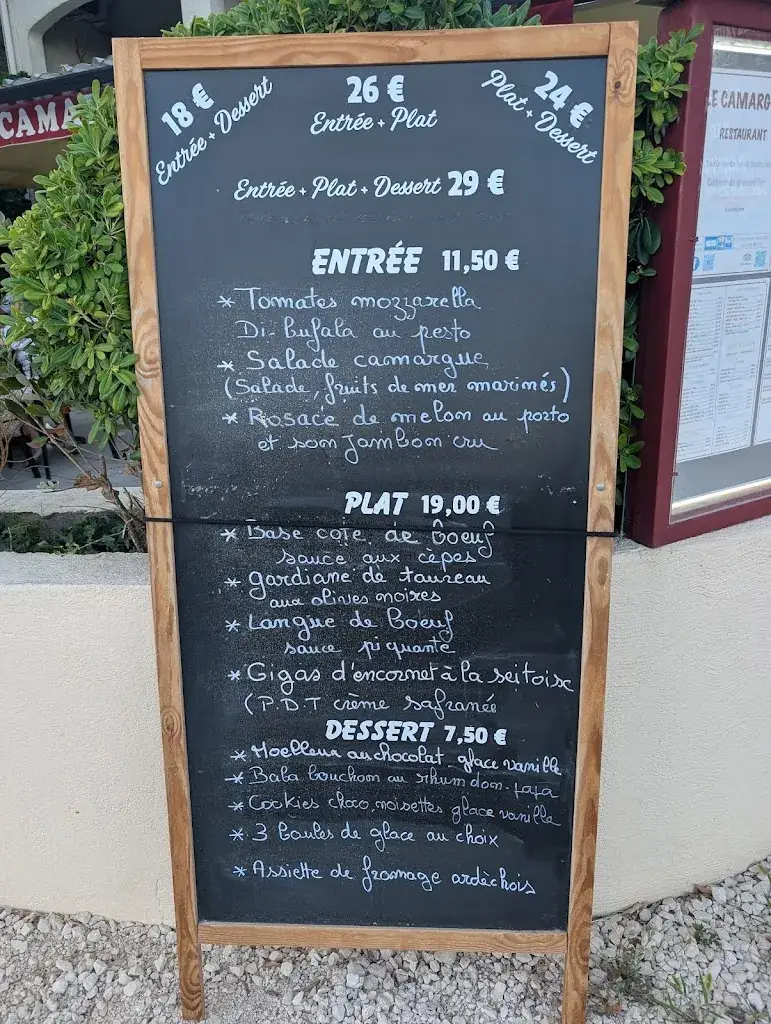 18 €
Entrée + Dessert
26 €
Entrée + Plat
24 €
Plat + Dessert
Entrée + Plat + Dessert 29 €
CAMA
LE CAMARG
RESTAURANT
ENTRÉE 11,50 €
* Tomates mozzarella
Di-bufala au pesto
* Salade camargue
(Salade, fruits de mer marinés)
* Rosace de melon au porto
et son jambon cru
PLAT 19,00 €
* Base cote de boeuf
sauce aux cèpes
* gardiane de taureau
aux olives noires
* Langue de boeuf
sauce piquante
* Gigas d'encornet à la seitoise
(P.D.T crème safranée
DESSERT 7,50 €
* Moelleux au chocolat glace vanille
* Baba bouchon au rhum don-papa
* Cookies choco, noisettes glace vanilla
* 3 boules de glace au choix
* Assiette de fromage ardèchois